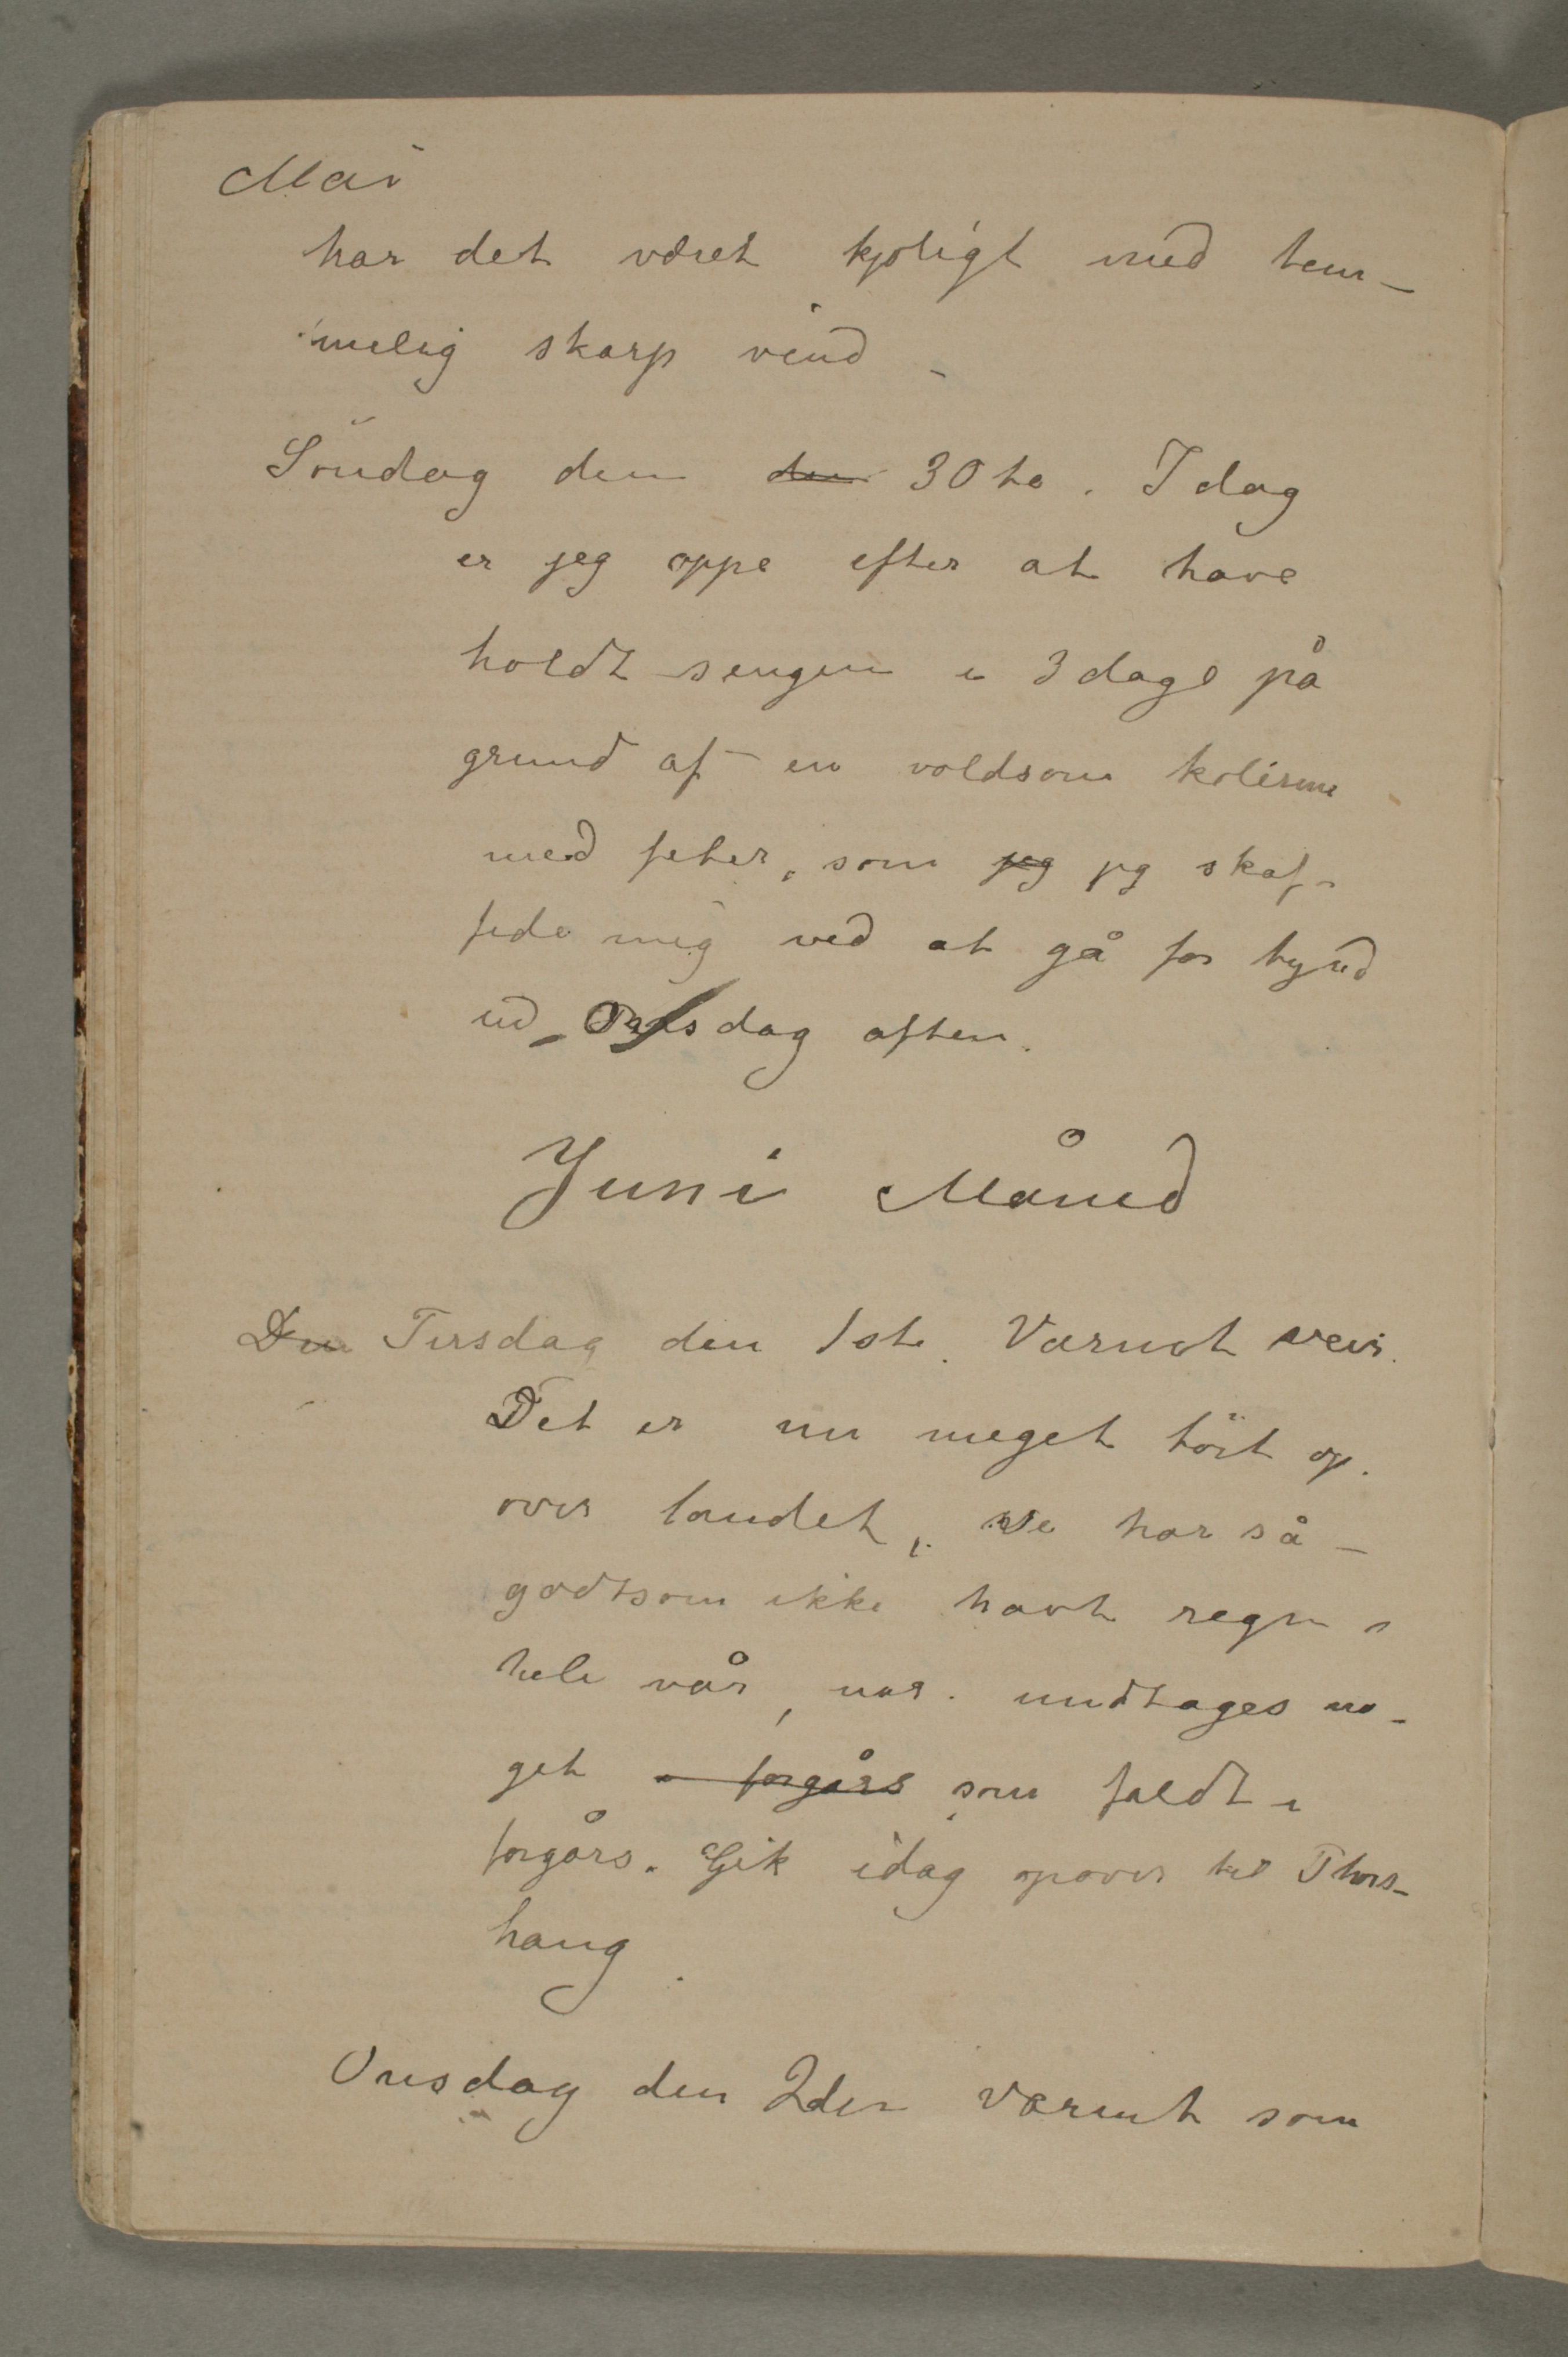 Mai
har det været kjøligt med tem-
melig skarp vind -
Söndag den den 30te. I dag
er jeg oppe efter at have
holdt sengen i 3 dage på
grund af en voldsom kolerine
med feber, som jeg jeg skaf-
fede mig ved at gå for tynd
ud, Onsdag aften.
Juni Måned
Den Tirsdag den 1ste. Varmt veir.
Det er nu meget tört op.
over landet, Vi har så-
godtsom ikke havt regn i
hele vår, nar. undtages no-
get i forgårs som faldt i
forgårs. Gik idag opover til Thors-
haug.
Onsdag den 2den Varmt som